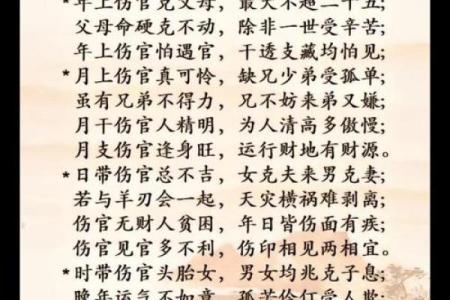 *年上伤官克父母，最大不超二十五；
父母命硬克不动，除非一世受辛苦；
年上伤官怕遇官，干透支藏均怕见；
*月上伤官真可怜，缺兄少弟受孤单；
虽有兄弟不得力，兄不妨来弟又嫌；
月干伤官人精明，为人清高多傲慢；
月支伤官逢身旺，运行财地有财源。
*日带伤官总不吉，女克夫来男克妻；
若与羊刃会一起，天灾横祸难剥离；
伤官无财人贫困，年日皆伤面有疾；
伤官见官多不利，伤印相见两相宜。
*时带伤官头胎女，男女均兆克子息；
晚年运气不如意，孤苦伶仃受人欺